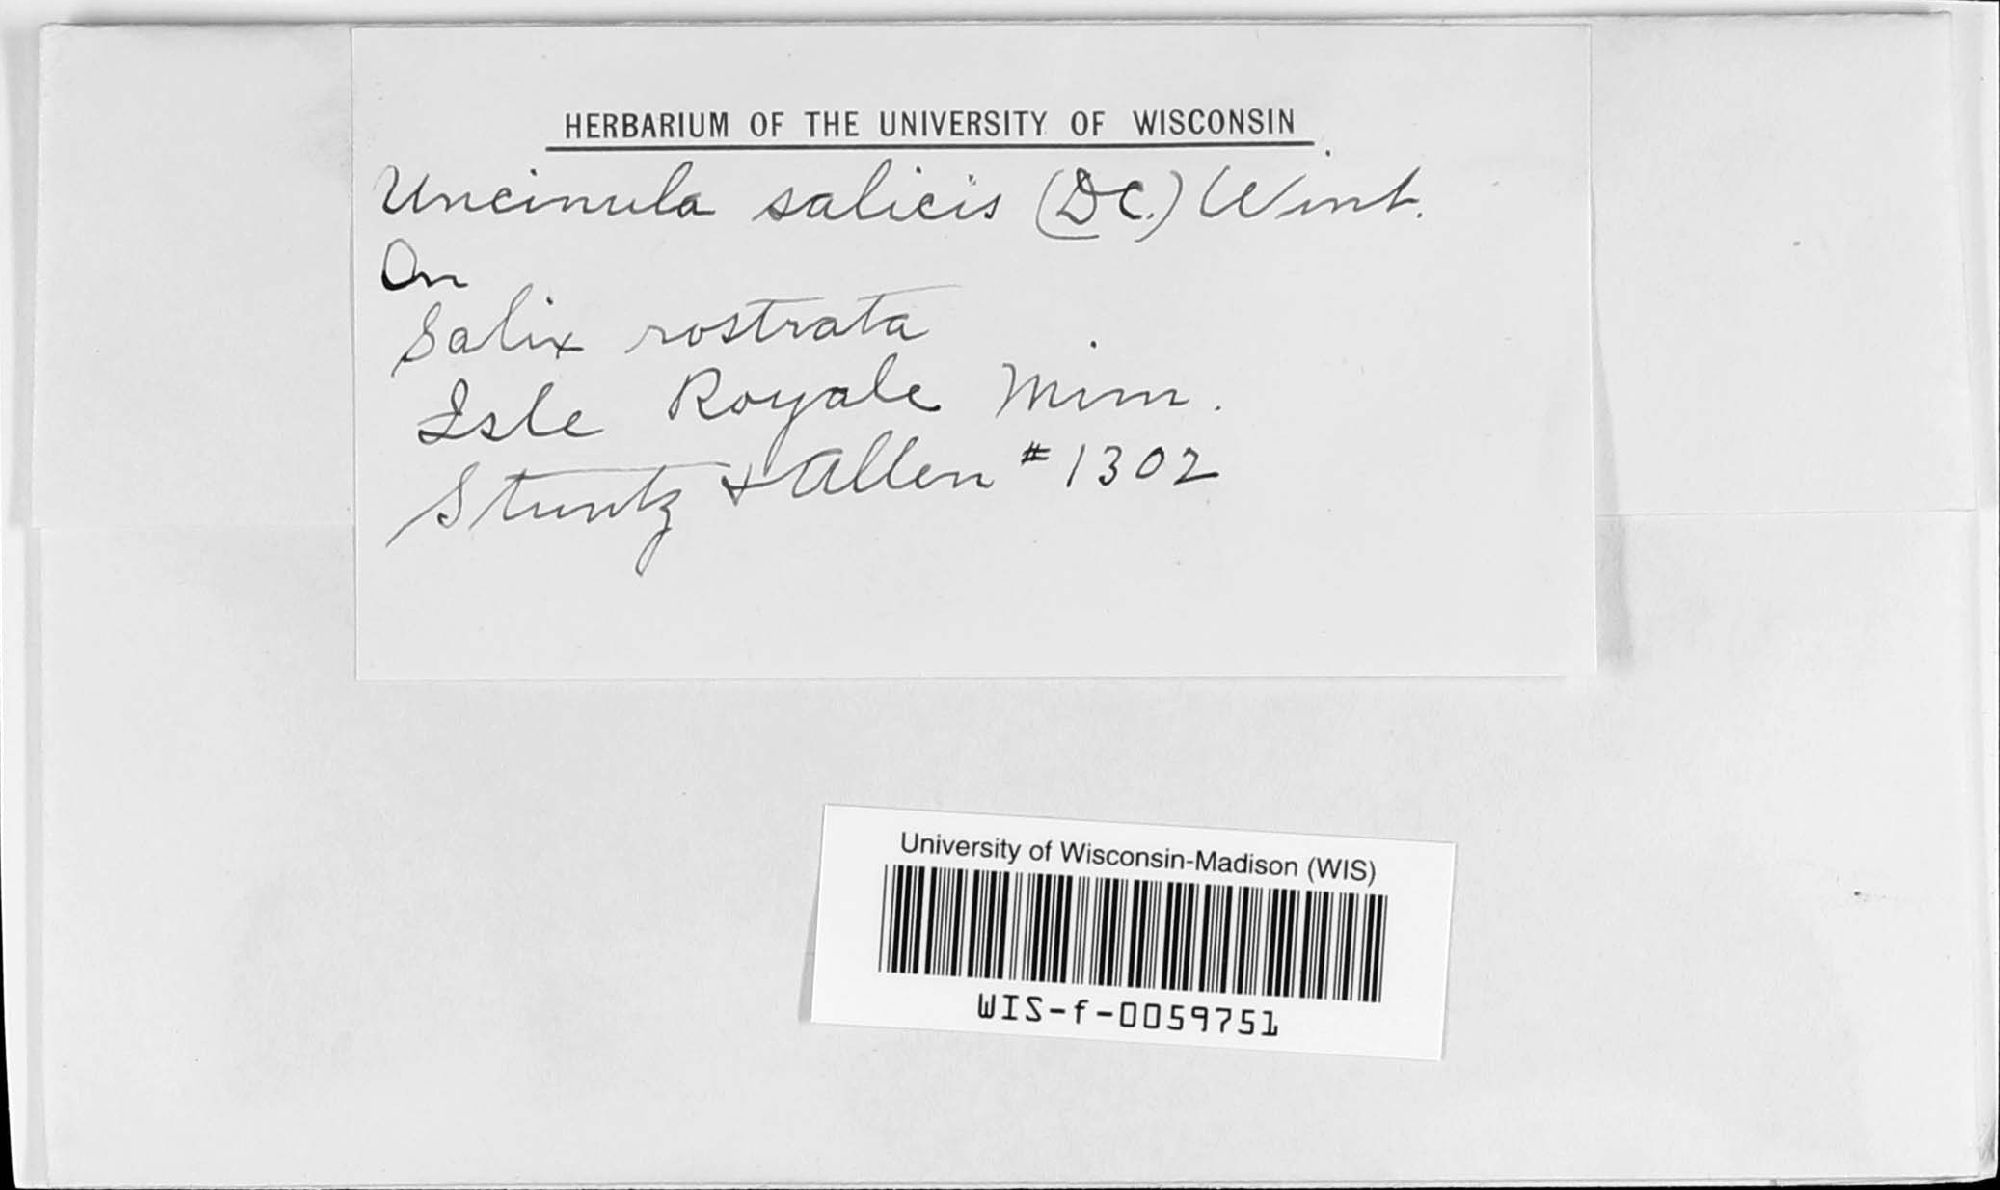 HERBARIUM OF THE UNIVERSITY OF WISCONSIN
Uncinula salicis (DC.) Wint.
On
Salix rostrata
Isle Royale Minn.
Stuntz & Allen #1302
University of Wisconsin-Madison (WIS)
WIS-f-0059751